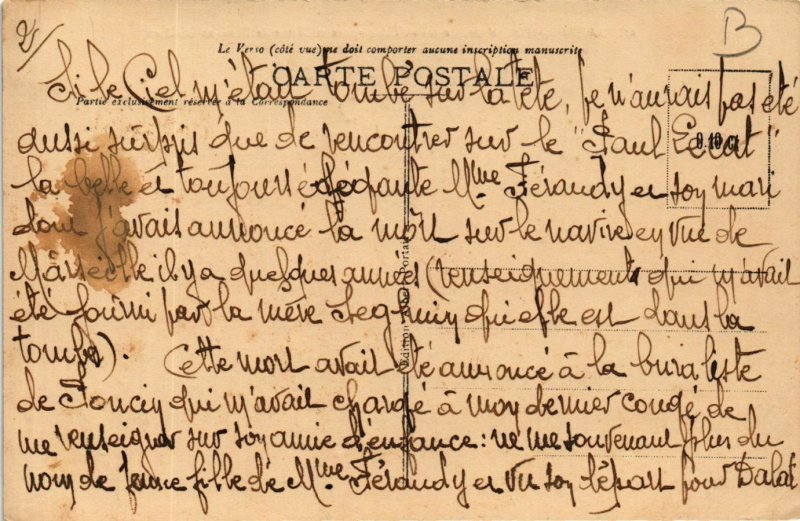 2/
B
Le Verso (côté vue) ne doit comporter aucune inscription manuscrite
CARTE POSTALE
Si le Ciel m'était tombé sur la tête, je n'aurais pas été
Partie exclusivement réservée à la Correspondance
aussi surpris que de rencontrer sur le "Paul Lecat"
la belle et toujours élégante Mme Férandy et son mari
dont j'avais annoncé la mort sur le navire en vue de
Marseille il y a quelques années (renseignement qui m'avait
été fourni par la mère qui elle est dans la
tombe). Cette mort avait été annoncé à la buraliste
de qui m'avait chargé à mon dernier congé de
me renseigner sur son amie d'enfance : ne me souvenant plus du
nom de jeune fille de Mme Férandy et vu son départ pour Dalat